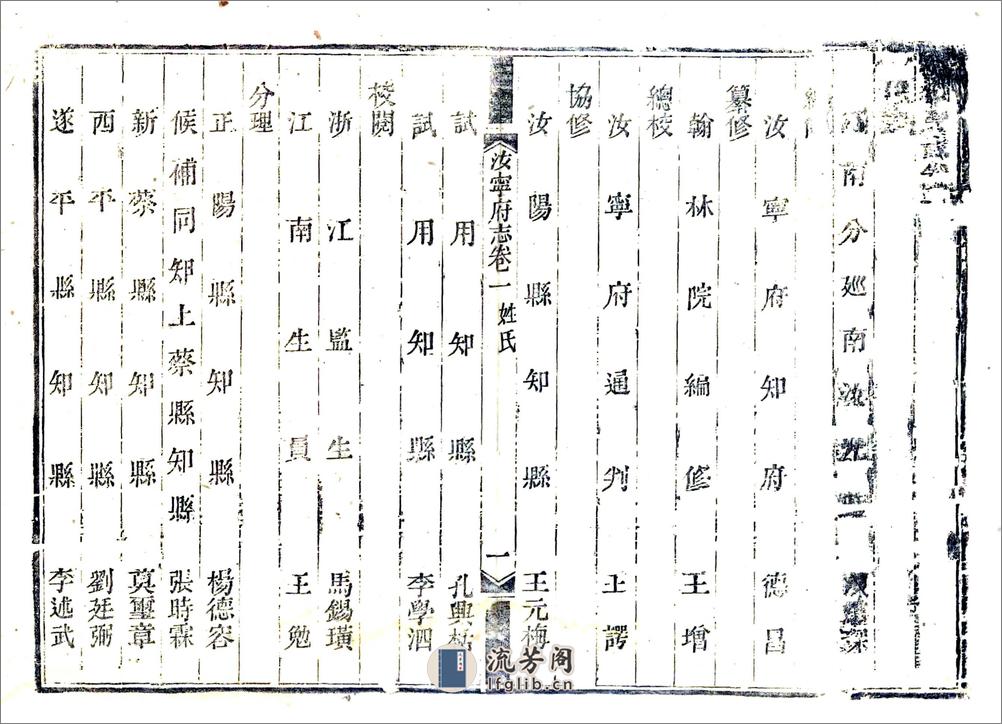 南分廵南
汝寧府知府 德昌
纂修
翰林院編修 王增
總校
汝寧府通判 王諤
協修
汝陽縣知縣 王元梅
汝寧府志卷一 姓氏 一
試用知縣 孔興
試用知縣 李學泗
校閱
浙江監生 馬錫璜
江南生員 王勉
分理
正陽縣知縣 楊德容
候補同知上蔡縣知縣 張時霖
新蔡縣知縣 莫璽章
西平縣知縣 劉廷弼
遂平縣知縣 李述武
流芳阁
lfglib.cn